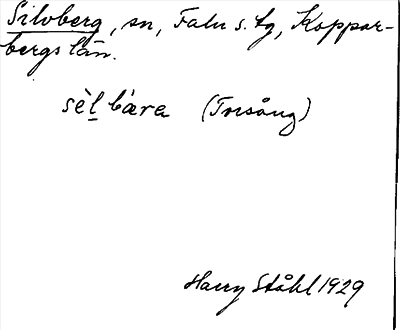 Silvberg, sn, Falu s. tg, Koppar-
bergs län.
sè̀l bæra (Torsång)
Harry Ståhl 1929